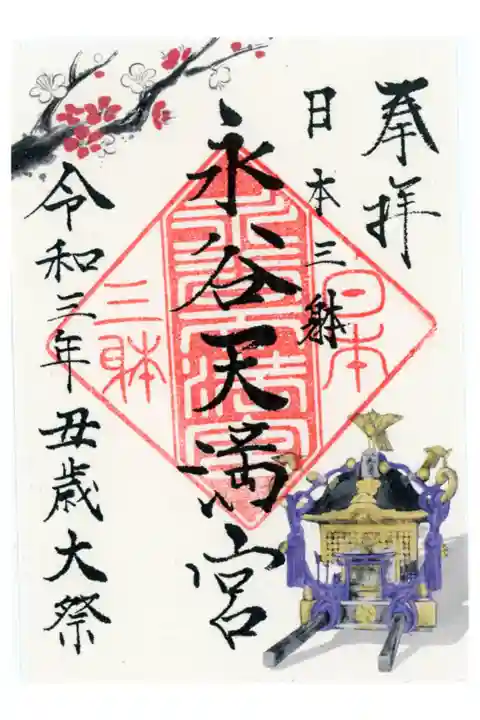 奉拝
日本三躰
永谷天満宮
令和三年丑歳大祭
日本
永谷天満宮
三躰